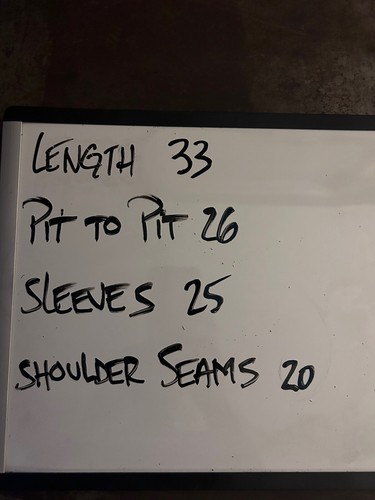 LENGTH 33
PIT TO PIT 26
SLEEVES 25
SHOULDER SEAMS 20